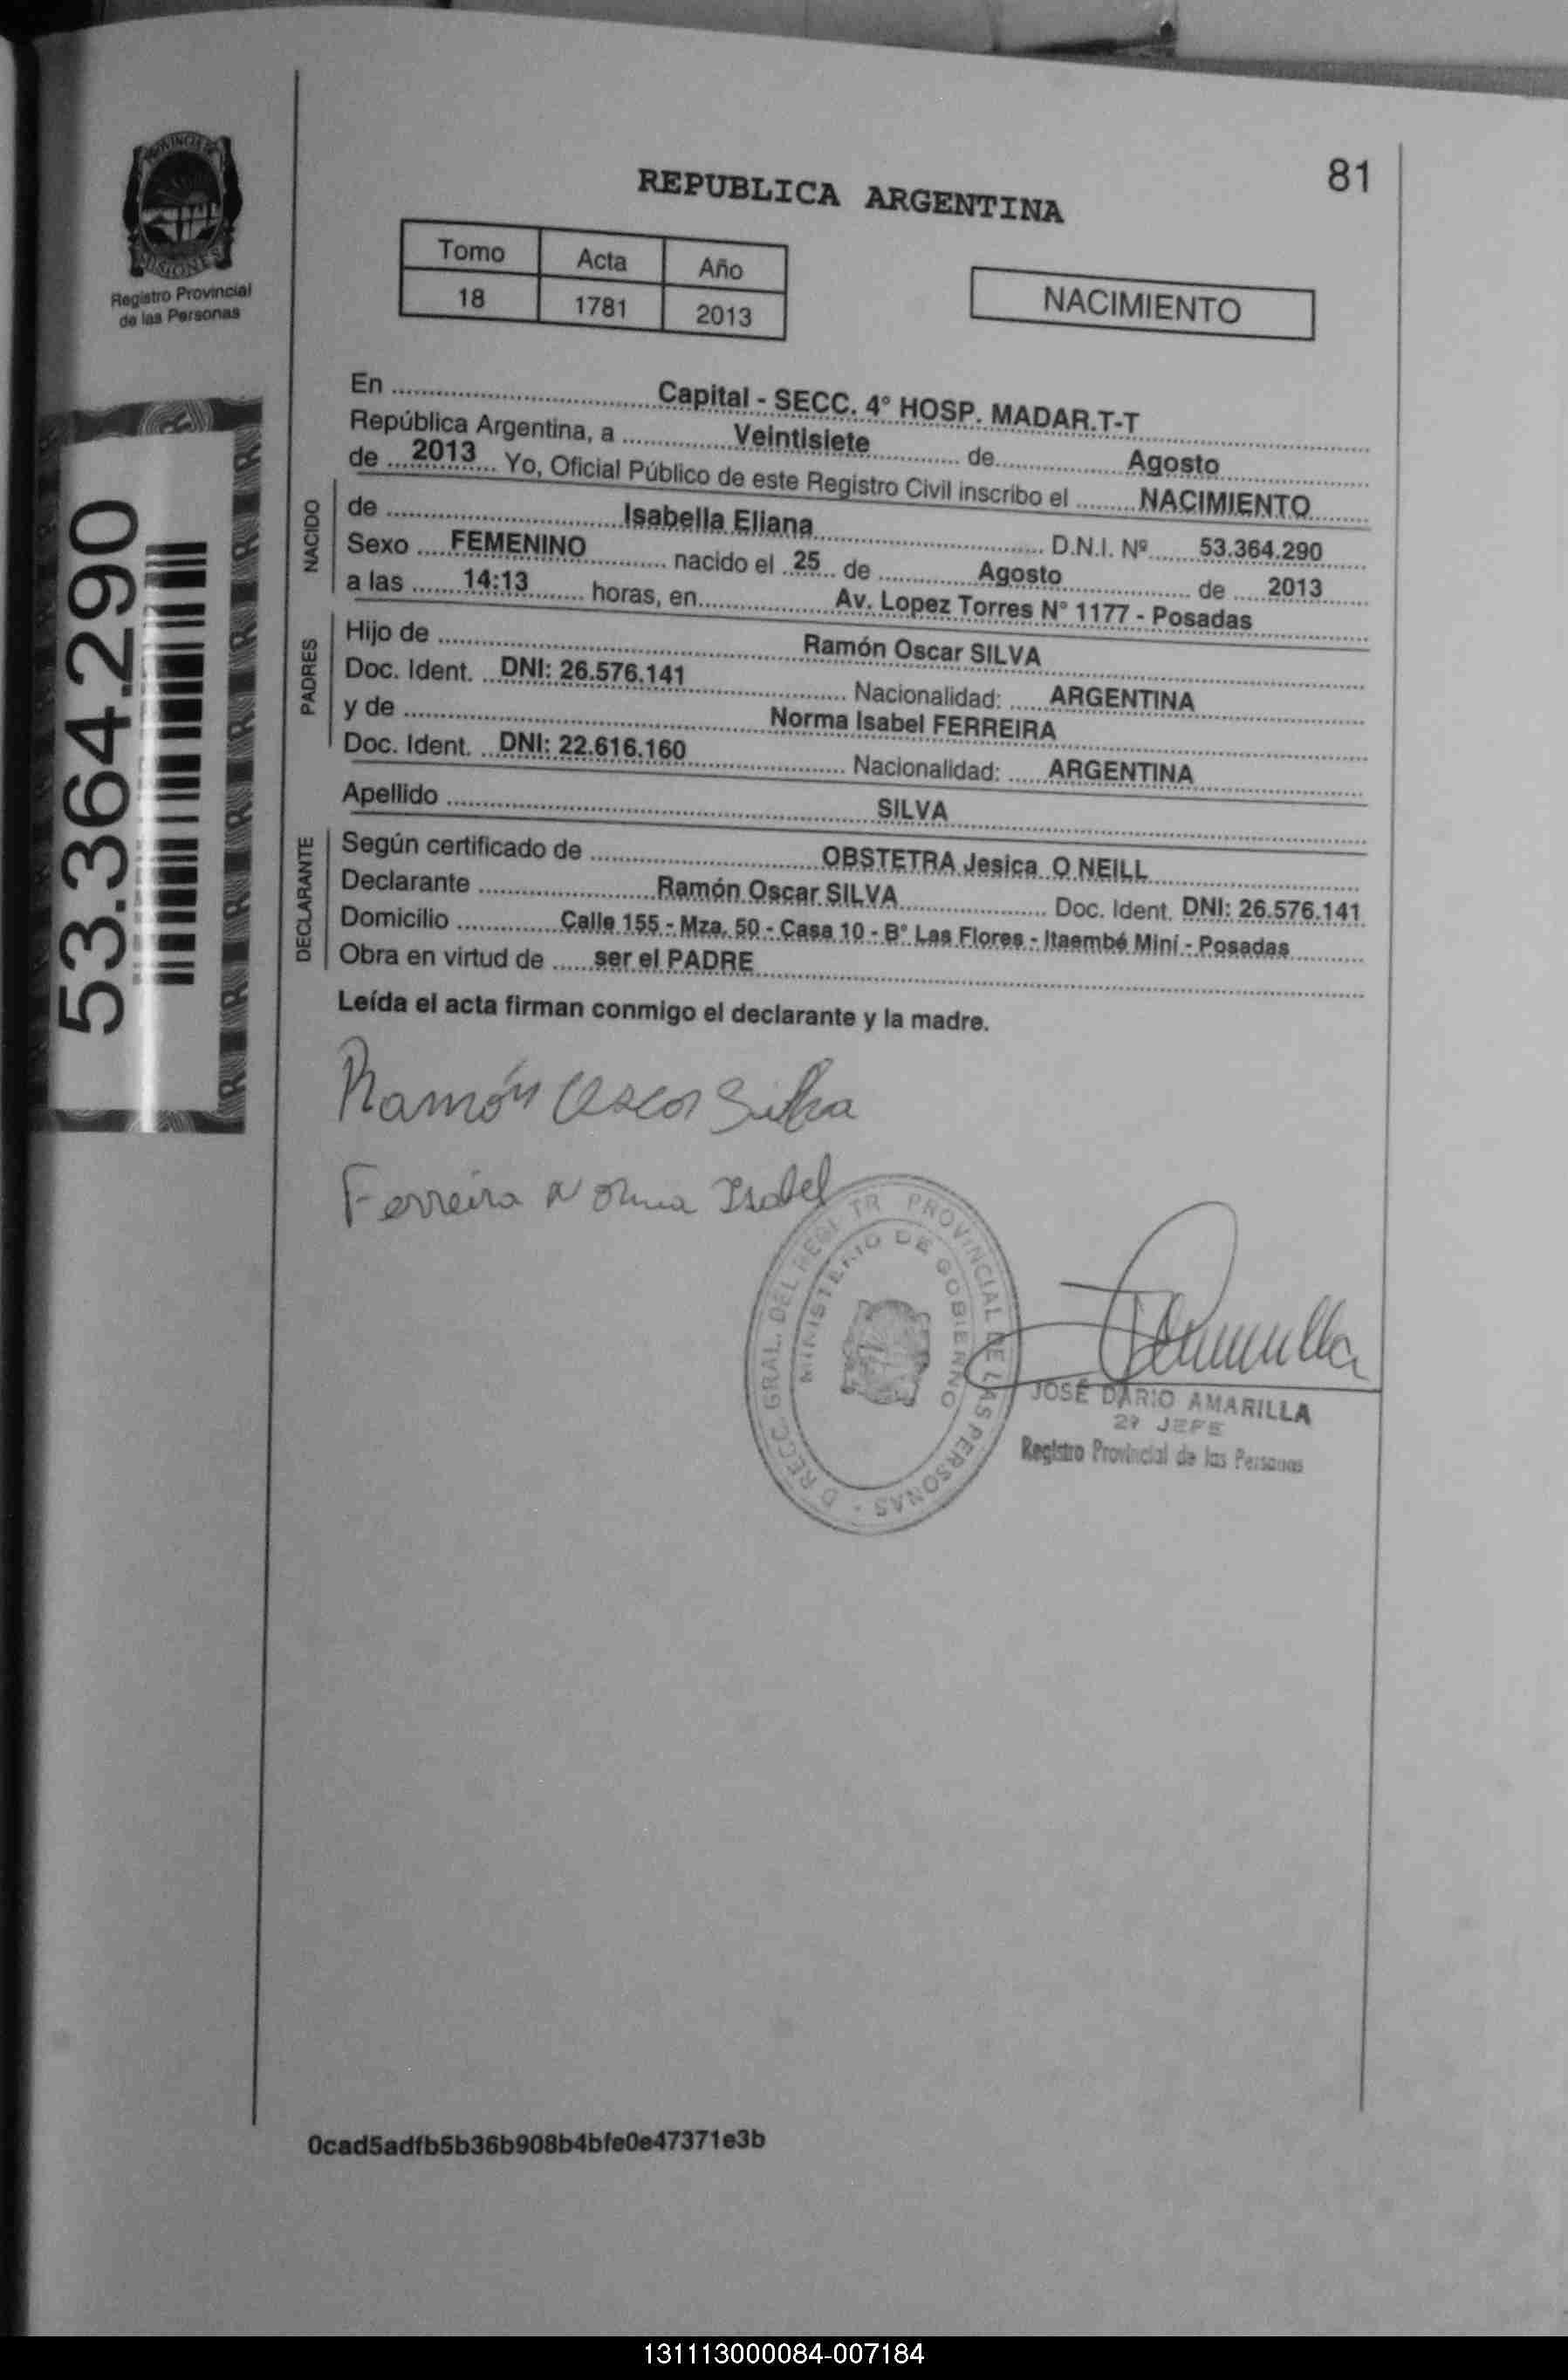 81
REPUBLICA ARGENTINA
PROVINCIA DE
MISIONES
Registro Provincial
de las Personas
Tomo Acta Año
18 1781 2013
NACIMIENTO
53.364.290
En Capital - SECC. 4° HOSP. MADAR.T-T
República Argentina, a Veintisiete de Agosto
de 2013 Yo, Oficial Público de este Registro Civil inscribo el NACIMIENTO
NACIDO
de Isabella Eliana D.N.I. Nº 53.364.290
Sexo FEMENINO nacido el 25 de Agosto de 2013
a las 14:13 horas, en Av. Lopez Torres N° 1177 - Posadas
PADRES
Hijo de Ramón Oscar SILVA
Doc. Ident. DNI: 26.576.141 Nacionalidad: ARGENTINA
y de Norma Isabel FERREIRA
Doc. Ident. DNI: 22.616.160 Nacionalidad: ARGENTINA
Apellido SILVA
DECLARANTE
Según certificado de OBSTETRA Jesica O NEILL
Declarante Ramón Oscar SILVA Doc. Ident. DNI: 26.576.141
Domicilio Calle 155 - Mza. 50 - Casa 10 - B° Las Flores - Itaembé Miní - Posadas
Obra en virtud de ser el PADRE
Leída el acta firman conmigo el declarante y la madre.
Ramón Oscar Silva
Ferreira Norma Isabel
PROVINCIAL DE LAS PERSONAS -
MINISTERIO DE GOBIERNO
JOSÉ DARIO AMARILLA
2º JEFE
Registro Provincial de las Personas
0cad5adfb5b36b908b4bfe0e47371e3b
131113000084-007184